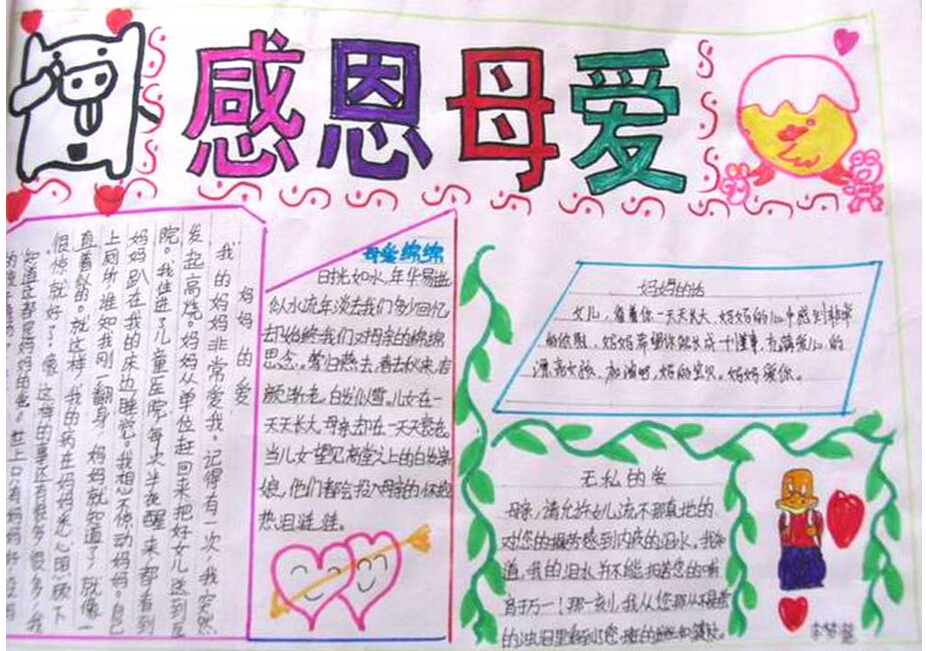 感恩母爱
妈妈的爱
我的妈妈非常爱我,记得有一次,我突然
发起高烧。妈妈从单位赶回来把好女儿送到医
院。我住进了儿童医院,每次半夜醒来都看到
妈妈趴在我的床边睡觉,我想不惊动妈妈。自己
上厕所,谁知我刚一翻身,妈妈就知道了,就像一
直看似的。就这样,我的病在妈妈悉心照顾下
很惊就好了。像这样的事还有很多很多,我
知道这都是妈妈的爱。世上只有妈妈好
母爱绵绵
时光如水,年华易逝
似水流年淡去我们多少回忆,
却始终我们对母亲的绵绵
思念。莺归燕去,春去秋来,容
颜渐老,白发似雪。儿女在一
天天长大,母亲却在一天天衰老。
当儿女望见高堂之上的白发亲
娘,他们都会投入母亲的怀抱
热泪涟涟。
妈妈的话
女儿,看着你一天天长大,妈妈的心中感到非常
的欣慰,妈妈希望你能长成十懂事,充满爱心的
漂亮女孩,加油吧,妈的宝贝。妈妈爱你。
无私的爱
母亲,请允许女儿流不那真地的
对您的操劳感到内疚的泪水。我知
道,我的泪水并不能报答您的哺
育于万一!那一刻,我从您那
的浊泪里看到了您